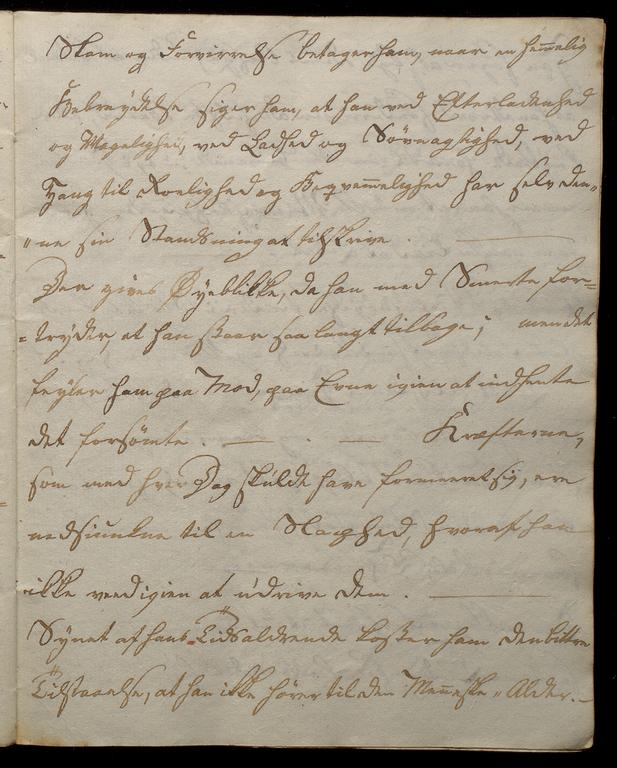 Skam og Forvirrelse betager ham, naar en hemmelig
Bebreydelse siger ham, at han ved Efterladenhed
og Magelighed, ved Ladhed og Søvnagtighed, ved
Hang til Roelighed og Beqvemmelighed har selv den-
"ne sin Standsning at tilskrive. —
Der gives Øyeblikke, da han med Smerte for=
=tryder, at han staar saa langt tilbage; men det
feyler ham paa Mod, paa Evne igien at indhente
det forsömte. — . — Kræfterne,
som med hver Dag skulde have formeeret sig, ere
nedsiunkne til en Slaphed, hvoraf han
ikke veed igien at udrive dem. —
Synet af hans Tidsaldrende koster ham den bittre
Tilstaaelse, at han ikke hører til den Menneske-Alder.—